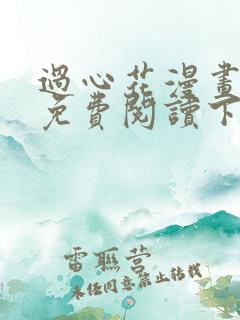 過心花漫畫
免費閱讀下
雷聯營
未经同意禁止转载